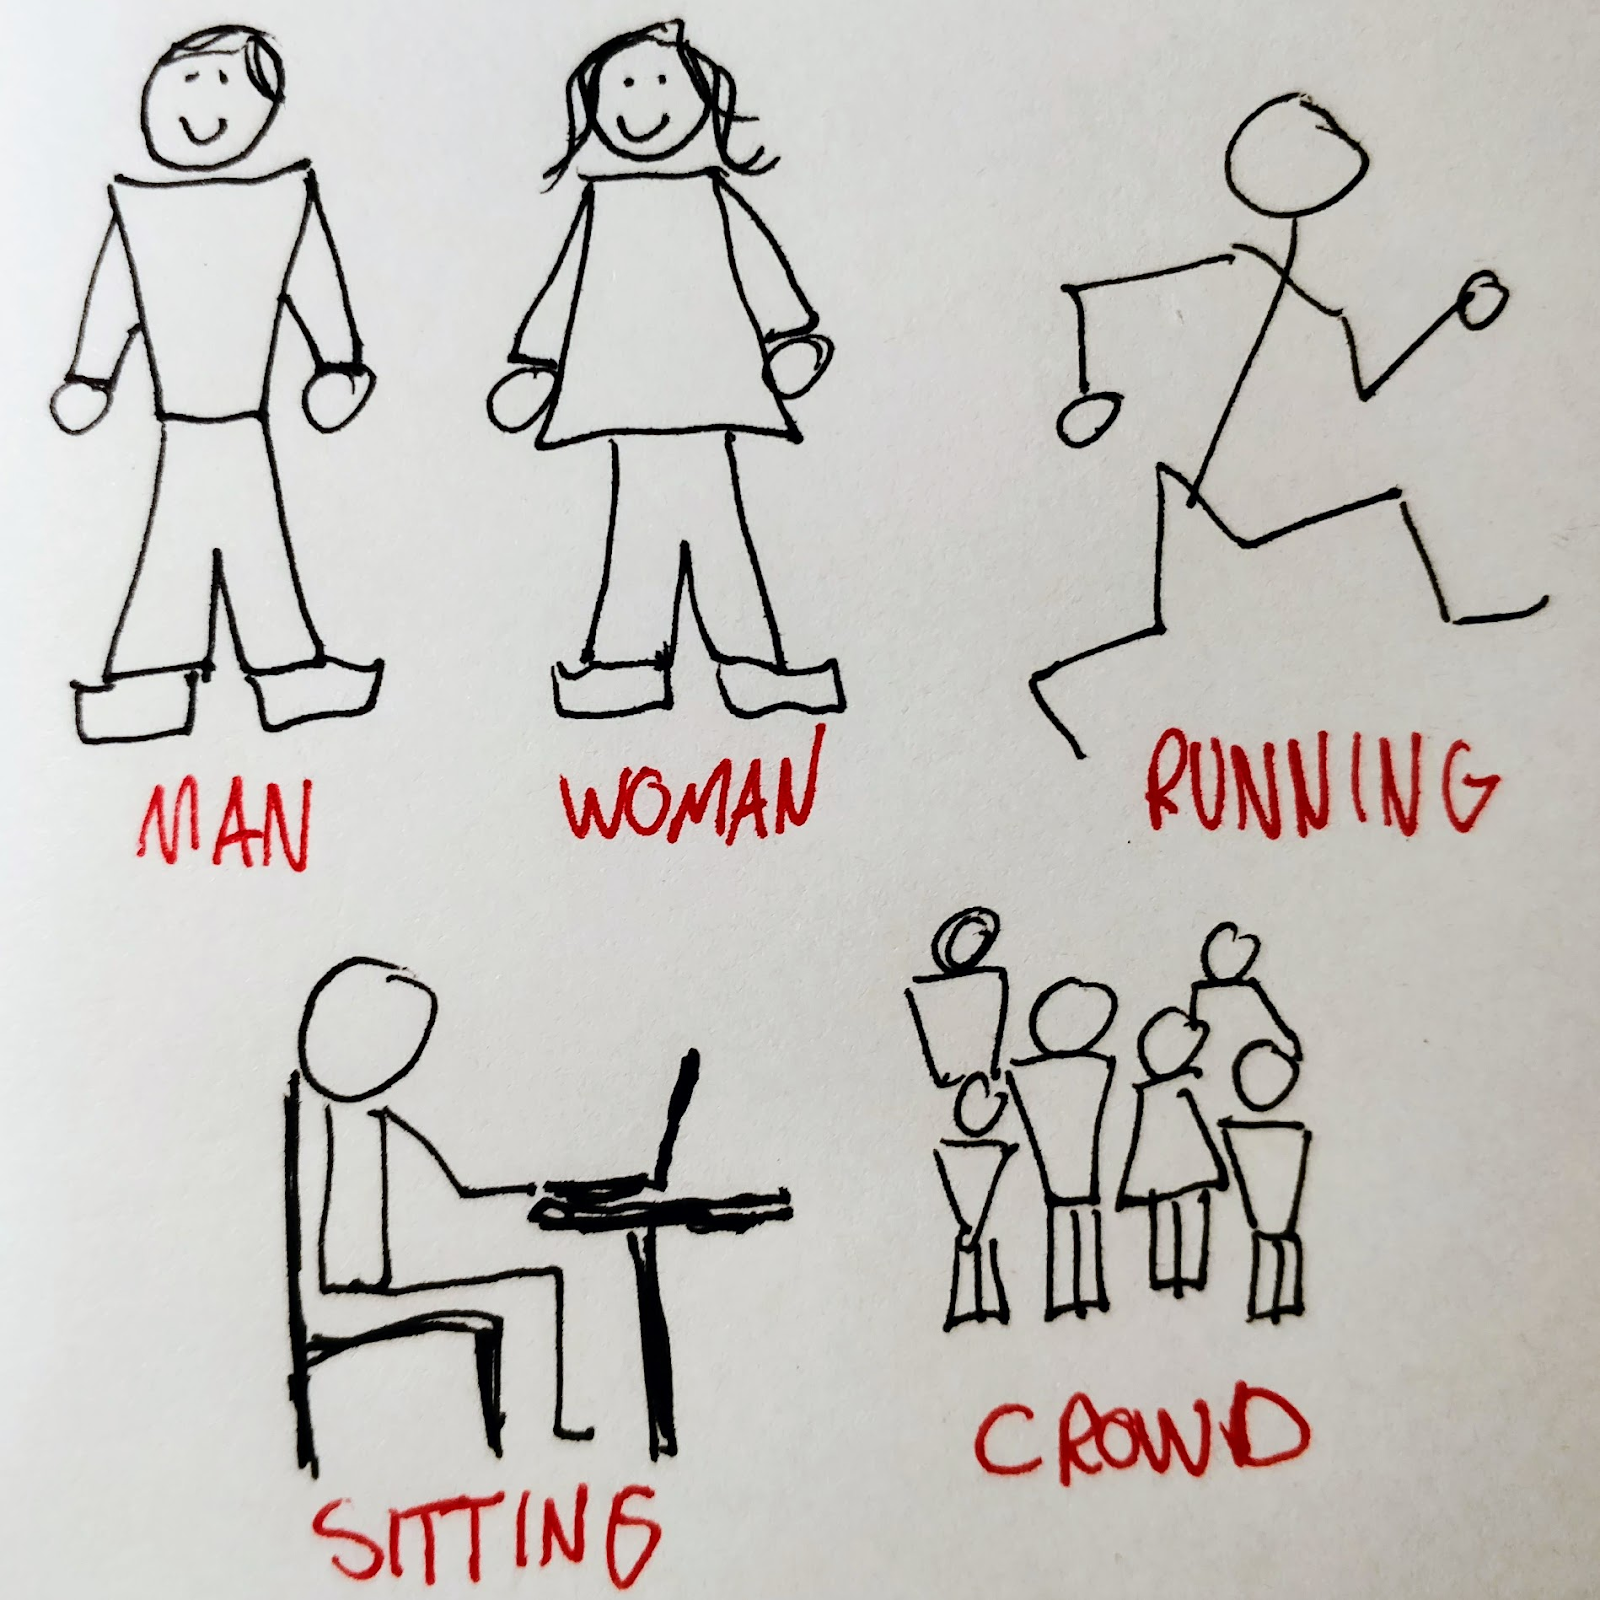 MAN
WOMAN
RUNNING
SITTING
CROWD